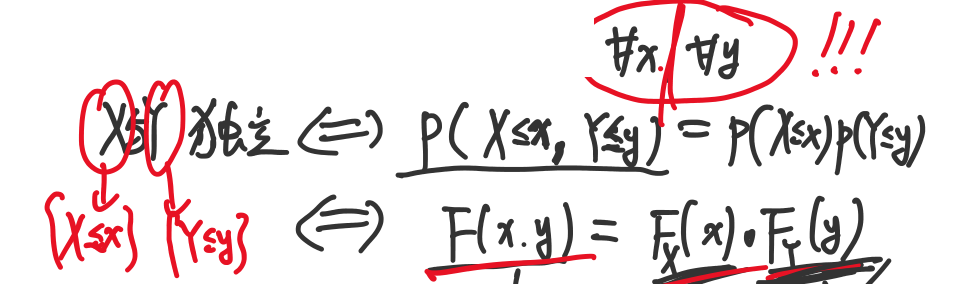 ∀x. ∀y !!!
X与Y 独立 ⟺ P(X≤x, Y≤y) = P(X≤x)P(Y≤y)
{X≤x} {Y≤y} ⟺ F(x.y) = F_X(x)·F_Y(y)